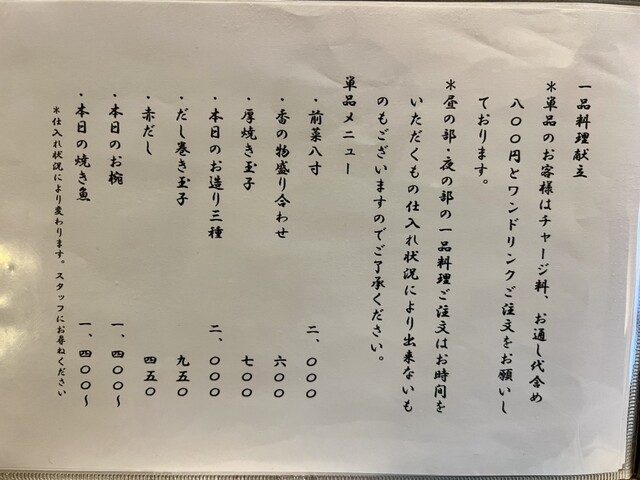 一品料理献立
＊単品のお客様はチャージ料、お通し代含め
八〇〇円とワンドリンクご注文をお願いし
ております。
＊昼の部・夜の部の一品料理ご注文はお時間を
いただくもの仕入れ状況により出来ないも
のもございますのでご了承ください。
単品メニュー
・前菜八寸　二、〇〇〇
・香の物盛り合わせ　六〇〇
・厚焼き玉子　七〇〇
・本日のお造り三種　二、〇〇〇
・だし巻き玉子　九五〇
・赤だし　四五〇
・本日のお椀　一、四〇〇～
・本日の焼き魚　一、四〇〇～
＊仕入れ状況により変わります。スタッフにお尋ねください